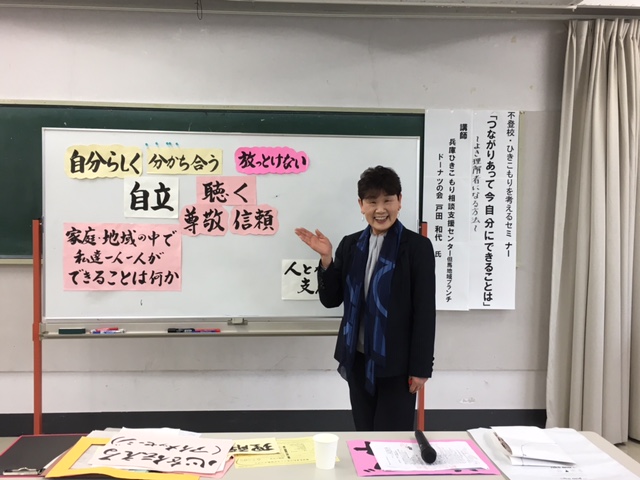 自分らしく
分かち合う
放っとけない
自立
聴く
尊敬
信頼
家庭・地域の中で
私達一人一人が
できることは何か
人と
支
不登校・ひきこもりを考えるセミナー
「つながりあって 今 自分にできることは」
～よき理解者になる方法～
講師
兵庫ひきこもり相談支援センター但馬地域ブランチ
ドーナツの会 戸田 和代 氏
心を伝える